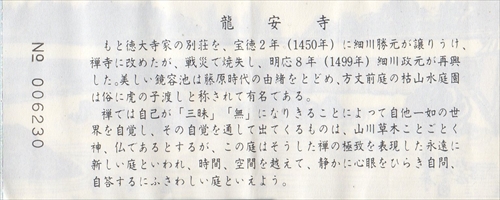 龍安寺
もと徳大寺家の別荘を、宝徳2年(1450年)に細川勝元が譲りうけ、
禅寺に改めたが、戦災で焼失し、明応8年(1499年)細川政元が再興
した。美しい鏡容池は藤原時代の由緒をとどめ、方丈前庭の枯山水庭園
は俗に虎の子渡しと称されて有名である。
禅では自己が「三昧」「無」になりきることによって自他一如の世
界を自覚し、その自覚を通して出てくるものは、山川草木ことごとく
神、仏であるとするが、この庭はそうした禅の極致を表現した永遠に
新しい庭といわれ、時間、空間を越えて、静かに心眼をひらき自問、
自答するにふさわしい庭といえよう。
No 006230